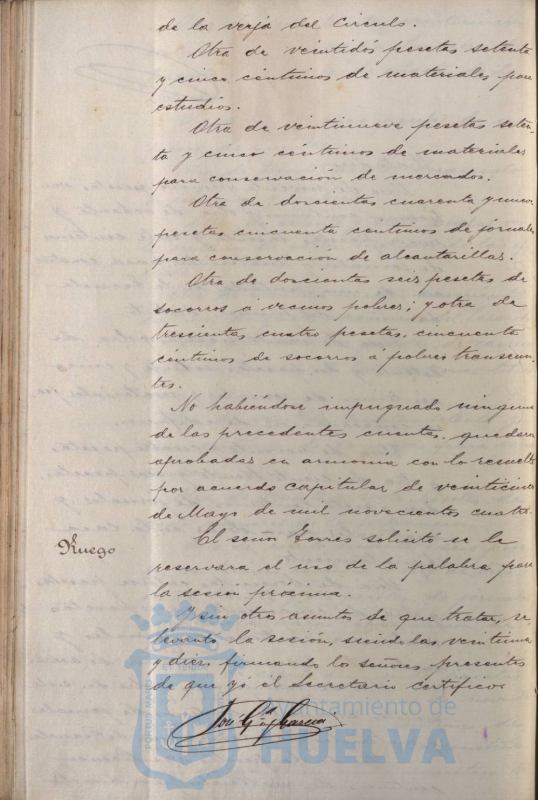 de la verja del Circulo.
Otra de veintidós pesetas setenta
y cinco céntimos de materiales para
estudios.
Otra de veintinueve pesetas seten-
ta y cinco céntimos de materiales
para conservación de mercados.
Otra de doscientas cuarenta y nueve
pesetas cincuenta céntimos de jornales
para conservación de alcantarillas.
Otra de doscientas seis pesetas de
socorros á vecinos pobres; y otra de
trescientas cuatro pesetas cincuenta
céntimos de socorros á pobres transeun-
tes.
No habiéndose impugnado ninguna
de las precedentes cuentas, quedaron
aprobadas en armonía con lo resuelto
por acuerdo capitular de veinticinco
de Mayo de mil novecientos cuatro.
Ruego
El señor Torres solicitó se le
reservara el uso de la palabra para
la sesión próxima.
Y sin otros asuntos de que tratar, se
levantó la sesión, siendo las veintiuna
y diez, firmando los señores presentes
de que yo el Secretario certifico.
PORTUS MARIS
Ayuntamiento de
HUELVA